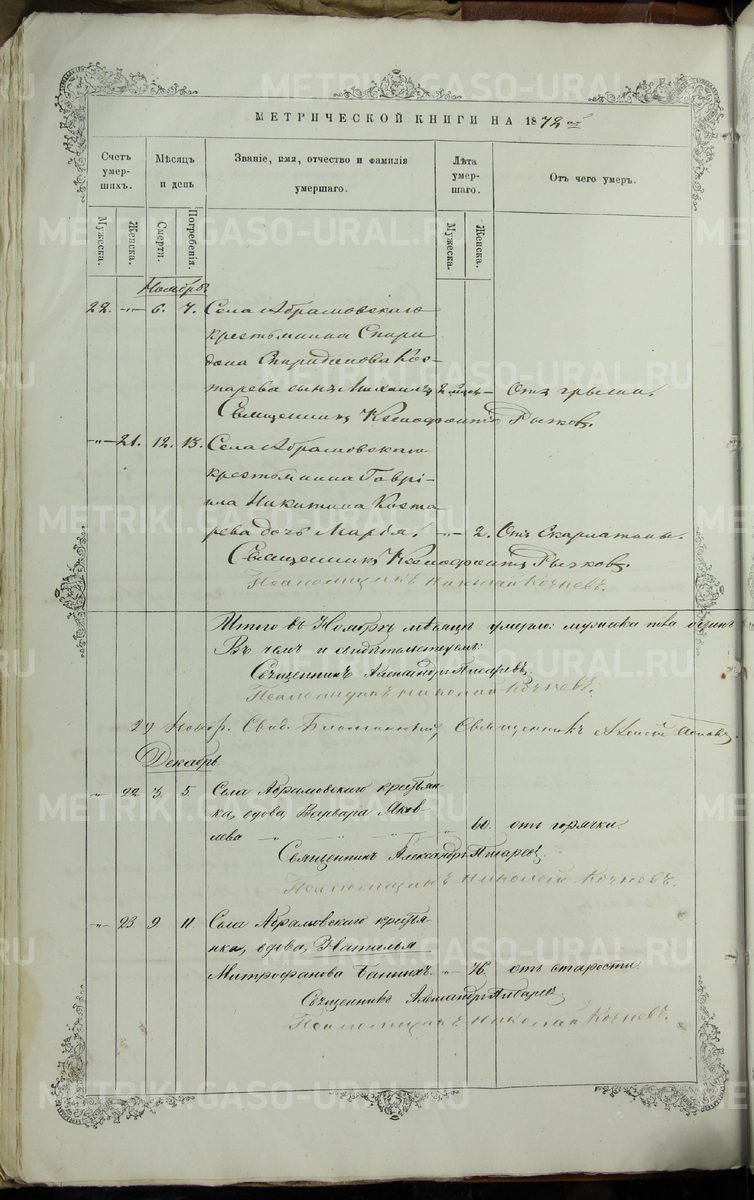 МЕТРИЧЕСКОЙ КНИГИ НА 1872 ой
Счетъ умер-шихъ.
Мѣсяцъ и день
Званіе, имя, отчество и фамилія умершаго.
Лѣта умер-шаго.
Отъ чего умеръ.
Мужеска.
Женска.
Смерти.
Погребенія.
Мужеска.
Женска.
Ноябрь
22. -"- 6. 7. Села Абрамовскаго
крестьянина Спири
дона Спиридонова Кос-
тарева сынъ Михаилъ 2 мѣс. - Отъ грыжи.
Священникъ Ксенофонтъ Рычков.
-"- 21. 12. 13. Села Абрамовскаго
крестьянина Гаврі-
ила Никитина Коста
рева дочь Марія. -"- 2. Отъ Скарлатины.
Священникъ Ксенофонтъ Рычков.
Псаломщикъ Николай Кочневъ.
Итого въ Ноябрѣ мѣсяцѣ умерло: мужеска пола одинъ
Въ чемъ и свидѣтельствуемъ:
Священникъ Александръ Писаревъ
Псаломщикъ Николай Кочневъ.
29 Нояб. Свид. Благочинный, Священникъ Алексій Попов.
Декабрь
" 22. 3. 5. Села Абрамовскаго крестьян
ка, вдова, Варвара Яков
лева " " " " 60. отъ горячки.
Священникъ Александръ Писаревъ
Псаломщикъ Николай Кочневъ.
-"- 23. 9. 11. Села Абрамовскаго крестья
нка, вдова, Наталья
Митрофанова " 76. отъ старости.
Священникъ Александръ Писаревъ
Псаломщикъ Николай Кочневъ.
METRIKI.GASO-URAL.RU